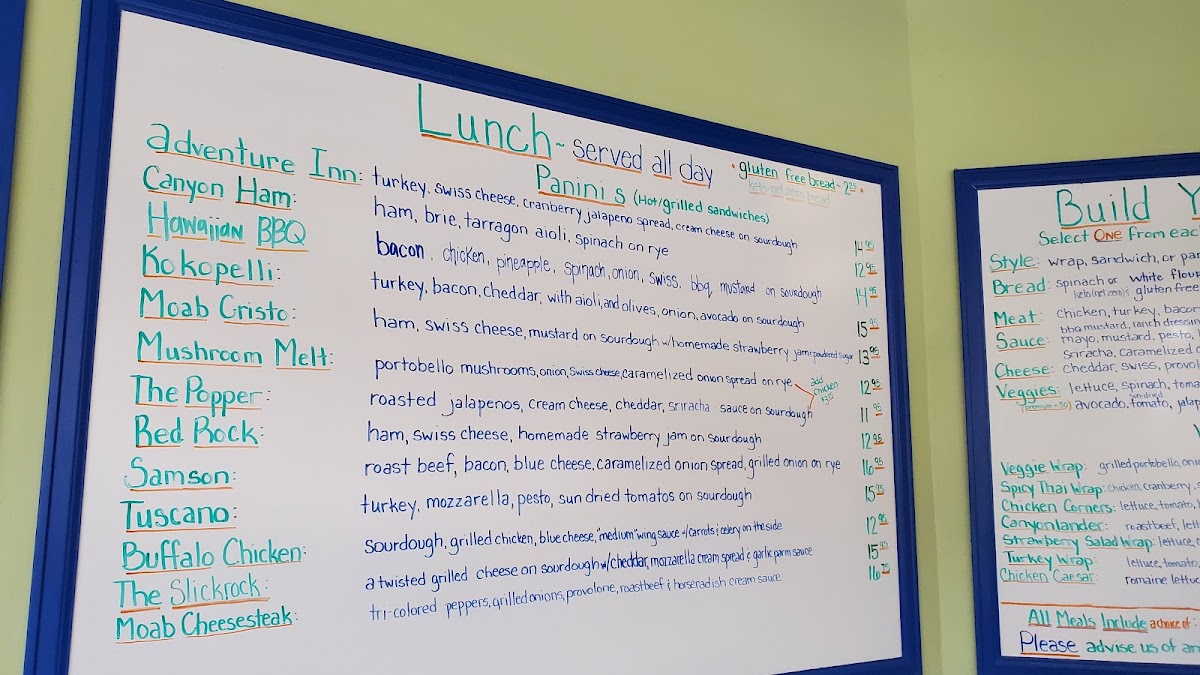 Lunch ~ served all day
* gluten free bread ~ 2.25 *
keto-net zero bread
Panini s (Hot/grilled sandwiches)
adventure Inn: turkey, swiss cheese, cranberry jalapeno spread, cream cheese on sourdough 14.95
Canyon Ham: ham, brie, tarragon aioli, spinach on rye 12.95
Hawaiian BBQ bacon, chicken, pineapple, spinach, onion, swiss, bbq mustard on sourdough 14.95
Kokopelli: turkey, bacon, cheddar, with aioli, and olives, onion, avocado on sourdough 15.95
Moab Cristo: ham, swiss cheese, mustard on sourdough w/homemade strawberry jam & powdered sugar 13.95
Mushroom Melt: portobello mushrooms, onion, swiss cheese, caramelized onion spread on rye 12.95
add chicken
The Popper: roasted jalapenos, cream cheese, cheddar, sriracha sauce on sourdough 11.95
Red Rock: ham, swiss cheese, homemade strawberry jam on sourdough 12.95
Samson: roast beef, bacon, blue cheese, caramelized onion spread, grilled onion on rye 16.95
Tuscano: turkey, mozzarella, pesto, sun dried tomatos on sourdough
Buffalo Chicken: sourdough, grilled chicken, blue cheese, "medium" wing sauce w/carrots & celery on the side 12.95
The Slickrock: a twisted grilled cheese on sourdough w/cheddar, mozzarella cream spread & garlic parm sauce
Moab Cheesesteak: tri-colored peppers, grilled onions, provolone, roastbeef & horseradish cream sauce
Build Y
Select ONE from eac
Style: wrap, sandwich, or pan
Bread: spinach or white flou
keto(net zero); gluten free
Meat: chicken, turkey, bacon
Sauce: bbq mustard, ranch dressing
mayo, mustard, pesto,
sriracha, caramelized o
Cheese: cheddar, swiss, provol
Veggies: lettuce, spinach, toma
avocado, sun-dried tomato, jalap
Veggie Wrap: grilled portobello, onio
Spicy Thai Wrap: chicken, cranberry,
Chicken Corners: lettuce, tomato,
Canyonlander: roastbeef, lett
Strawberry Salad Wrap: lettuce,
Turkey Wrap: lettuce, tomato,
Chicken Caesar: romaine lettuc
All Meals Include a choice of:
Please advise us of an